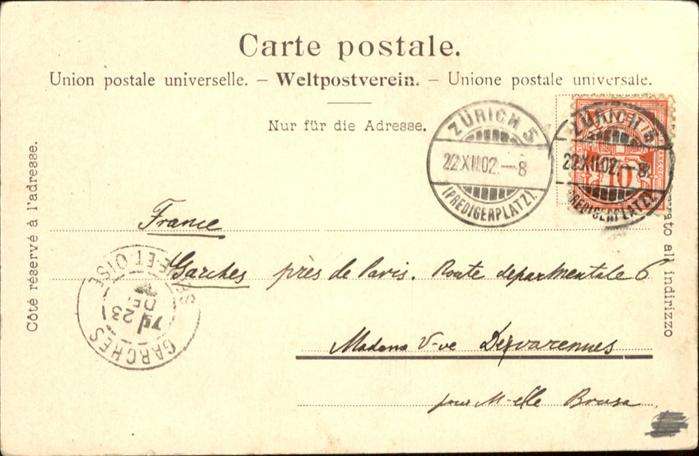 Carte postale.
Union postale universelle. – Weltpostverein. – Unione postale universale.
Nur für die Adresse.
ZÜRICH 5
22.XII.02.–8
(PREDIGERPLATZ)
ZÜRICH 5
22.XII.02.–8
(PREDIGERPLATZ)
10
Côté réservé à l'adresse.
all indirizzo
France
Garches près de Paris. Route departmentale 6
Madame V-ve Desvarennes
pour M-elle Brusa
GARCHES
23
DEC
ET OISE